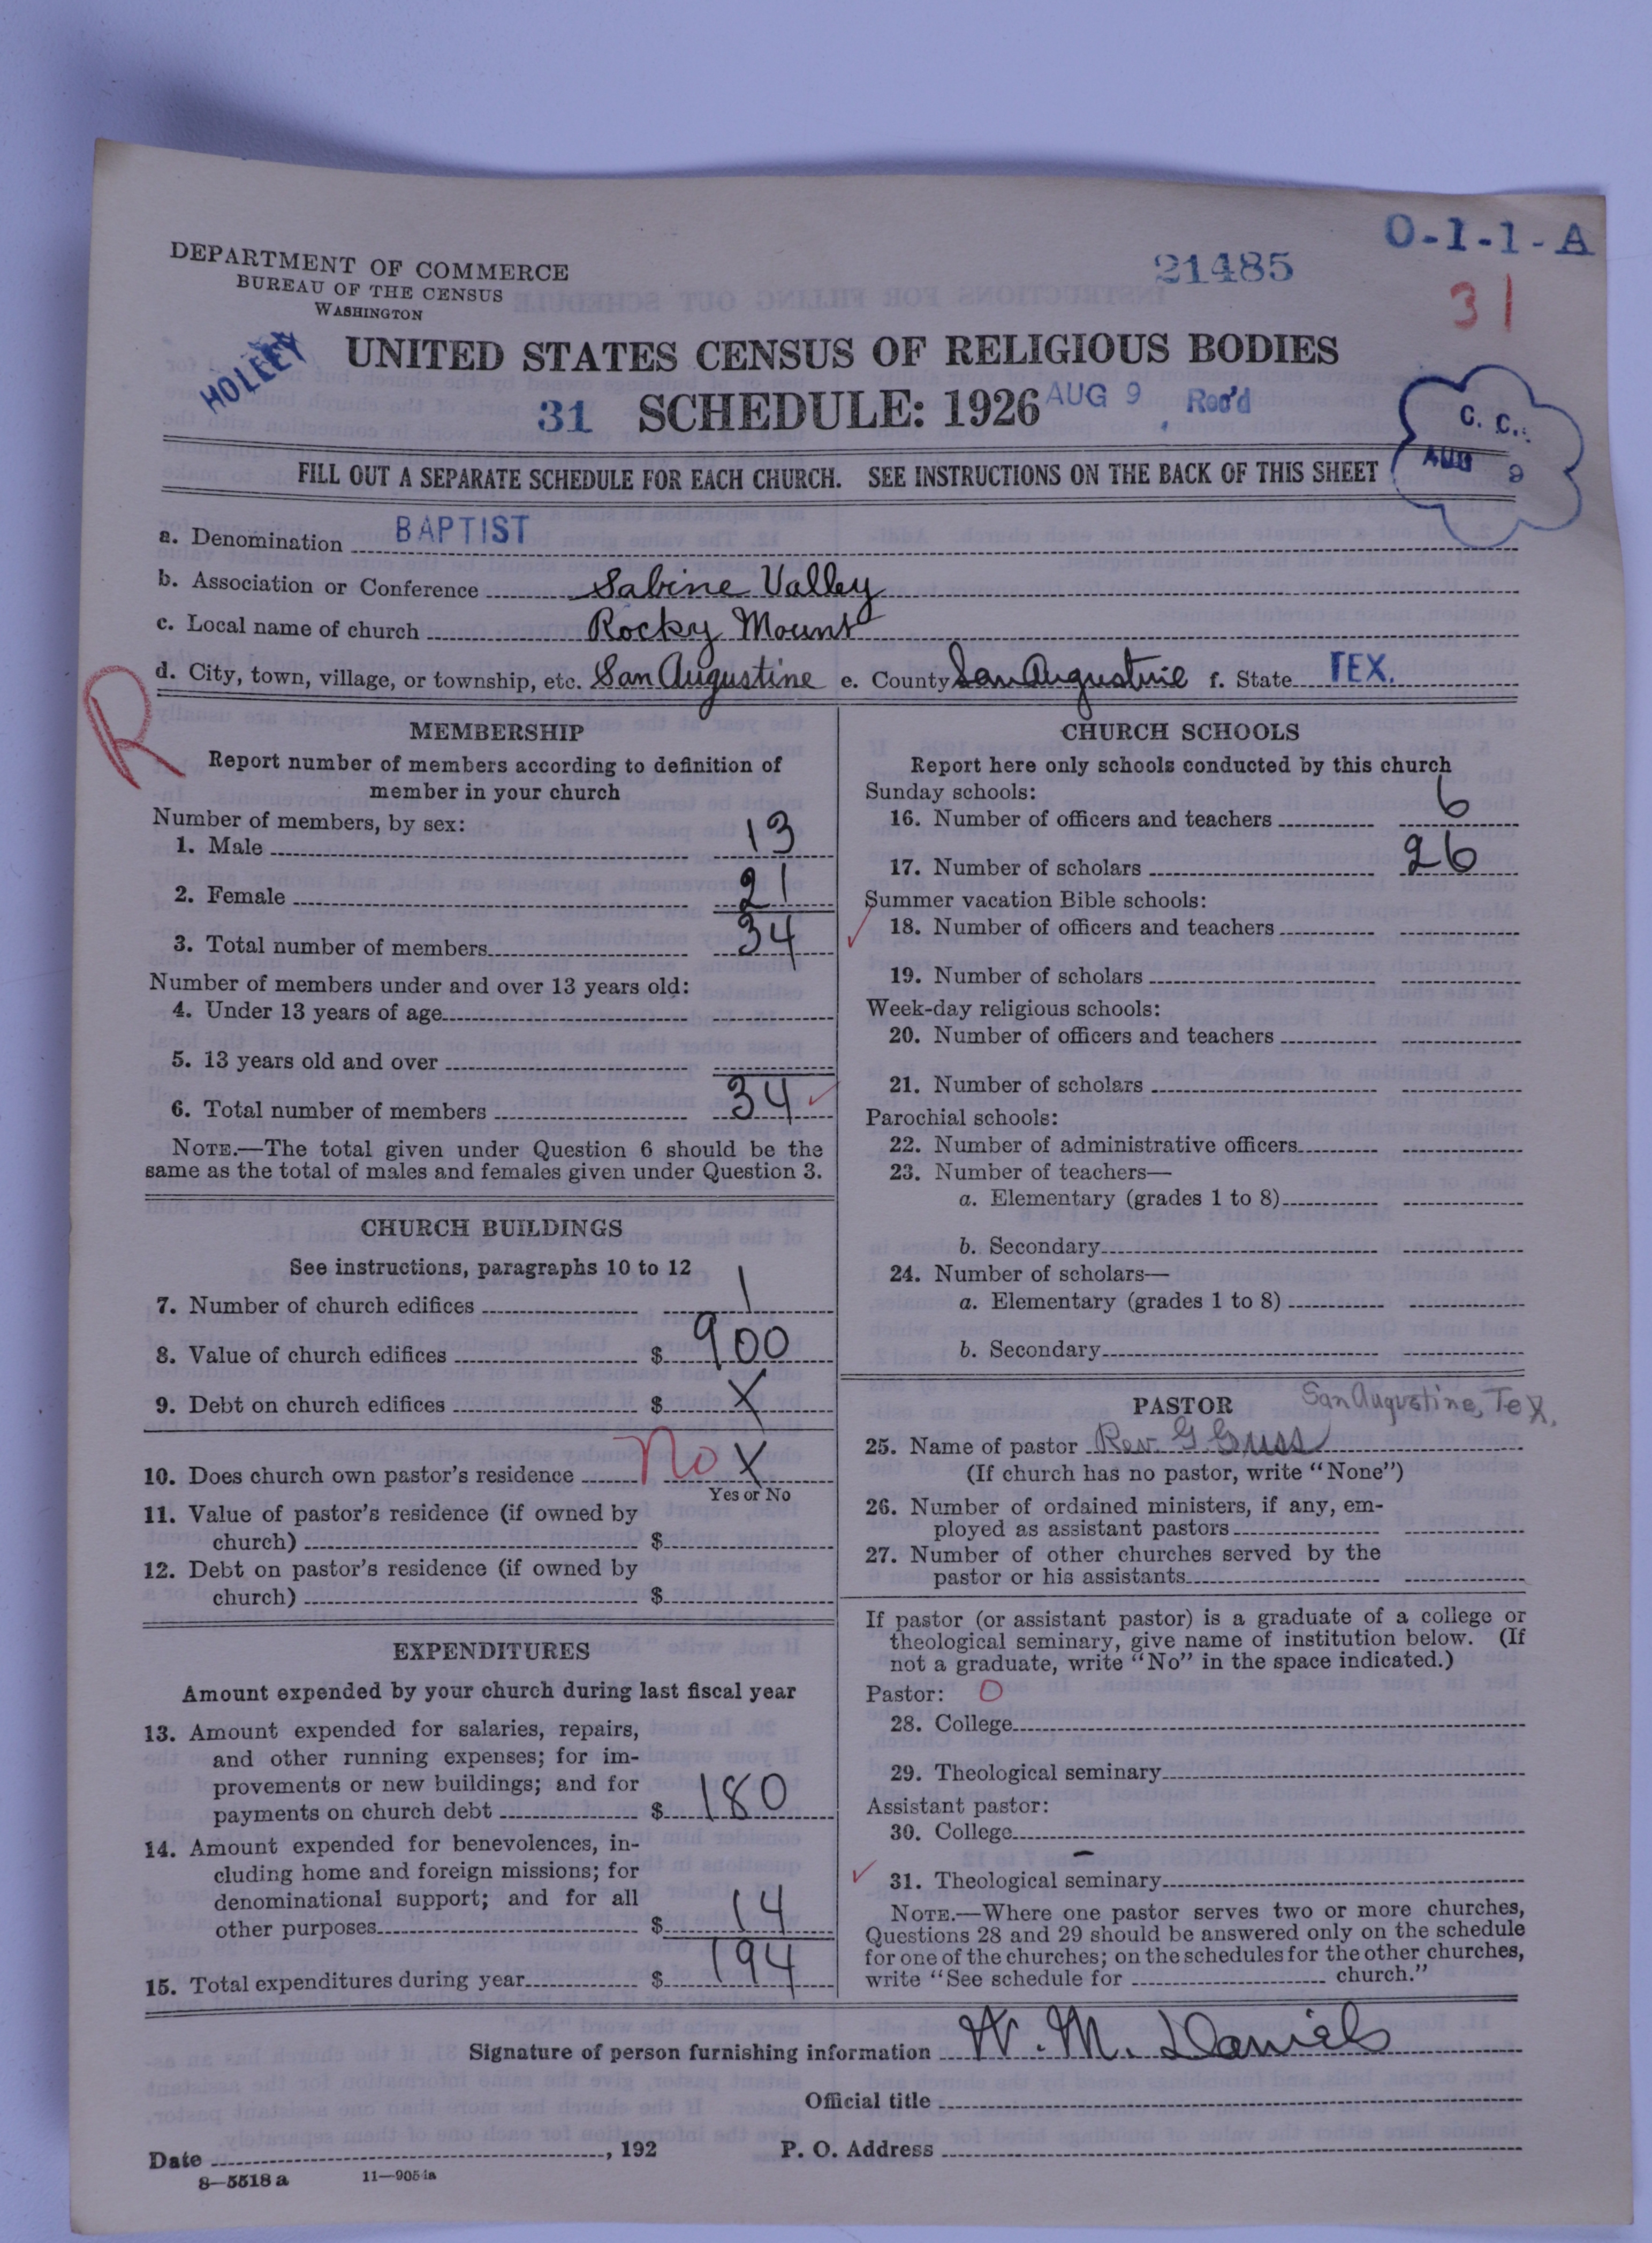 O-1-1-A
21485
31
DEPARTMENT OF COMMERCE
BUREAU OF THE CENSUS
WASHINGTON
HOLLEY
UNITED STATES CENSUS OF RELIGIOUS BODIES
31 SCHEDULE: 1926 AUG 9 Rec'd
C. C.
AUG 9
FILL OUT A SEPARATE SCHEDULE FOR EACH CHURCH. SEE INSTRUCTIONS ON THE BACK OF THIS SHEET
a. Denomination BAPTIST
b. Association or Conference Sabine Valley
c. Local name of church Rocky Mount
d. City, town, village, or township, etc. San Augustine e. County San Augustine f. State TEX.
R
MEMBERSHIP
Report number of members according to definition of
member in your church
Number of members, by sex:
1. Male 13
2. Female 21
3. Total number of members 34
Number of members under and over 13 years old:
4. Under 13 years of age
5. 13 years old and over
6. Total number of members 34
NOTE.—The total given under Question 6 should be the
same as the total of males and females given under Question 3.
CHURCH BUILDINGS
See instructions, paragraphs 10 to 12
7. Number of church edifices 1
8. Value of church edifices $ 900
9. Debt on church edifices $ X
10. Does church own pastor's residence No X
Yes or No
11. Value of pastor's residence (if owned by
church) $
12. Debt on pastor's residence (if owned by
church) $
EXPENDITURES
Amount expended by your church during last fiscal year
13. Amount expended for salaries, repairs,
and other running expenses; for im-
provements or new buildings; and for
payments on church debt $ 180
14. Amount expended for benevolences, in-
cluding home and foreign missions; for
denominational support; and for all
other purposes $ 14
15. Total expenditures during year $ 194
CHURCH SCHOOLS
Report here only schools conducted by this church
Sunday schools:
16. Number of officers and teachers 6
17. Number of scholars 26
Summer vacation Bible schools:
18. Number of officers and teachers
19. Number of scholars
Week-day religious schools:
20. Number of officers and teachers
21. Number of scholars
Parochial schools:
22. Number of administrative officers
23. Number of teachers—
a. Elementary (grades 1 to 8)
b. Secondary
24. Number of scholars—
a. Elementary (grades 1 to 8)
b. Secondary
PASTOR San Augustine, Tex.
25. Name of pastor Rev. G. Guss
(If church has no pastor, write "None")
26. Number of ordained ministers, if any, em-
ployed as assistant pastors
27. Number of other churches served by the
pastor or his assistants
If pastor (or assistant pastor) is a graduate of a college or
theological seminary, give name of institution below. (If
not a graduate, write "No" in the space indicated.)
Pastor: O
28. College
29. Theological seminary
Assistant pastor:
30. College
31. Theological seminary
NOTE.—Where one pastor serves two or more churches,
Questions 28 and 29 should be answered only on the schedule
for one of the churches; on the schedules for the other churches,
write "See schedule for church."
Signature of person furnishing information W. M. Daniels
Official title
Date , 192 P. O. Address
8—5518 a 11—9051a